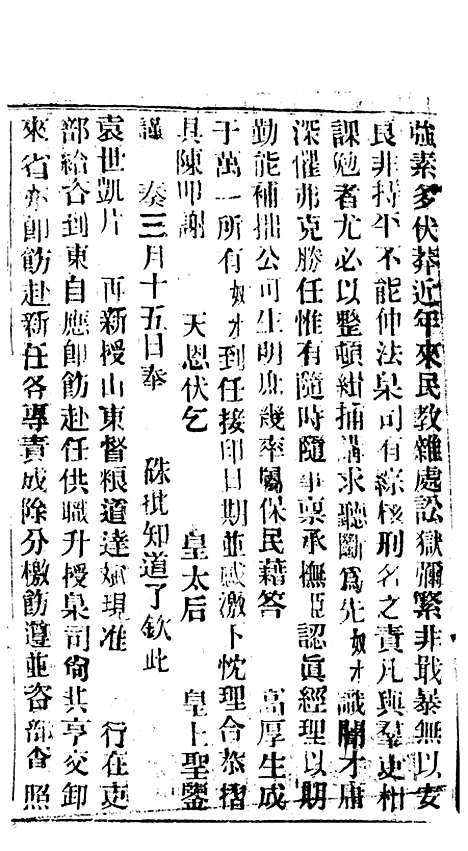 強素多伏莽近年來民教雜處訟獄彌繁非戢暴無以安
良非持平不能伸法臬司有綜核刑名之責凡與羣吏相
課勉者尤必以整頓緝捕講求聽斷爲先奴才識闇才庸
深懼弗克勝任惟有隨時隨事稟承撫臣認眞經理以期
勤能補拙公可生明庶幾率屬保民藉答　高厚生成
于萬一所有奴才到任接印日期並感激下忱理合恭摺
具陳叩謝　天恩伏乞　皇太后　皇上聖鑒
謹　奏三月十五日奉　硃批知道了欽此
袁世凱片　再新授山東督糧道達斌現准　行在吏
部給咨到東自應即飭赴任供職升授臬司尙其亨交卸
來省亦卽飭赴新任各專責成除分檄飭遵並咨部查照